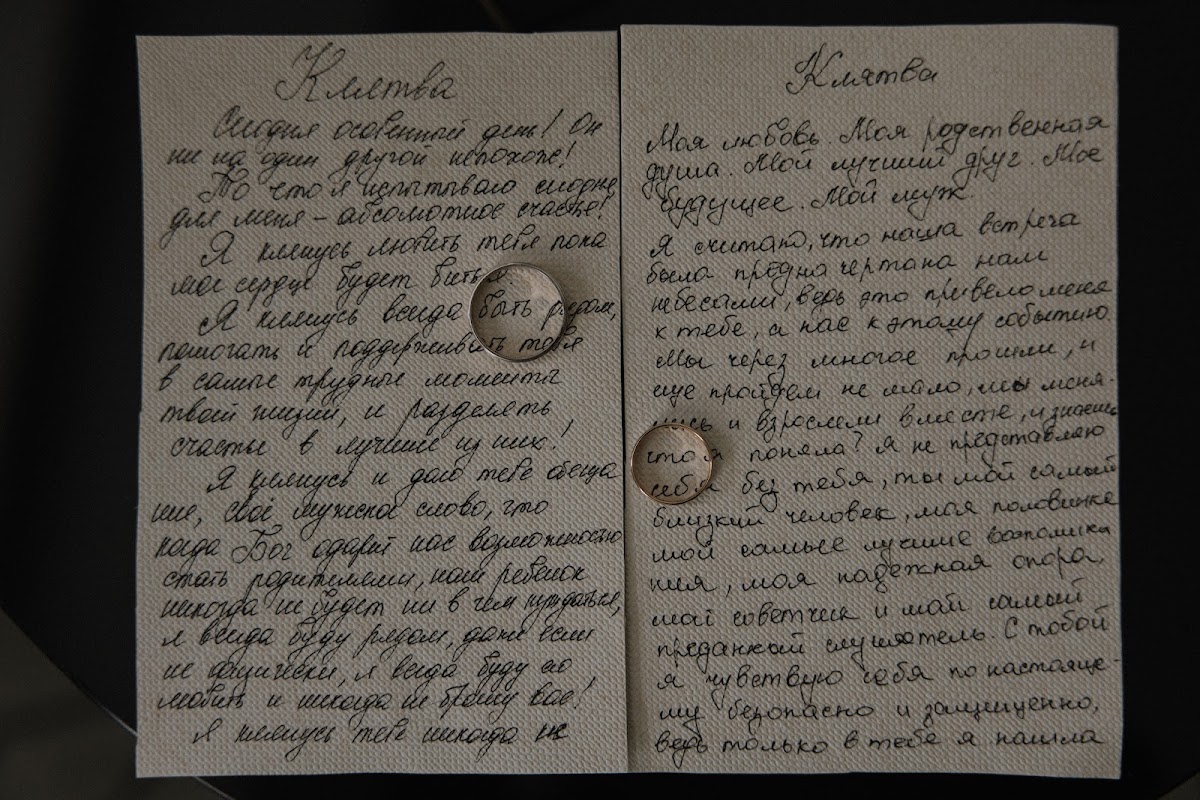 Клятва
Сегодня особенный день! Он
ни на один другой непохож!
То что я испытываю сегодня,
для меня – абсолютное счастье!
Я клянусь любить тебя пока
мое сердце будет биться
Я клянусь всегда быть рядом,
помогать и поддерживать тебя
в самые трудные моменты
твоей жизни, и разделять
счастье в лучшие из них!
Я клянусь и даю тебе обеща
ние, своё мужское слово, что
когда Бог одарит нас возможностью
стать родителями, наш ребенок
никогда не будет ни в чем нуждаться,
я всегда буду рядом, даже если
не физически, я всегда буду его
любить и никогда не брошу вас!
Я клянусь тебе никогда не
Клятва
Моя любовь. Моя родственная
душа. Мой лучший друг. Мое
будущее. Мой муж.
Я считаю, что наша встреча
была предначертана нам
небесами, ведь это привело меня
к тебе, а нас к этому событию.
Мы через многое прошли, и
еще пройдем не мало, мы меня-
лись и взрослели вместе, и знаешь
что я поняла? Я не представляю
себя без тебя, ты мой самый
близкий человек, моя половинка
мои самые лучшие воспомина
ния, моя надежная опора,
мой советчик и мой самый
преданный слушатель. С тобой
я чувствую себя по настояще-
му безопасно и защищенно,
ведь только в тебе я нашла